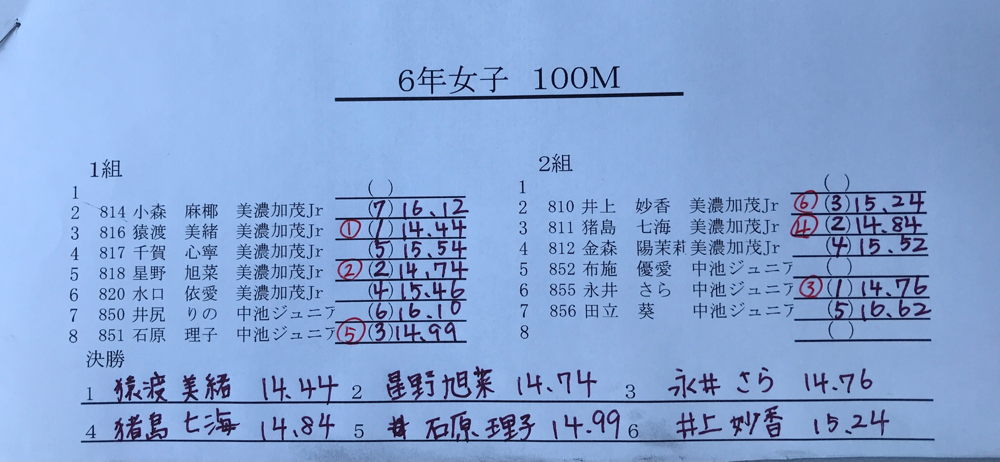 6年女子 100M
1組
1 ( )
2 814 小森 麻椰 美濃加茂Jr (7) 16.12
3 816 猿渡 美緒 美濃加茂Jr ① (1) 14.44
4 817 千賀 心寧 美濃加茂Jr (5) 15.54
5 818 星野 旭菜 美濃加茂Jr ② (2) 14.74
6 820 水口 依愛 美濃加茂Jr (4) 15.46
7 850 井尻 りの 中池ジュニア (6) 16.10
8 851 石原 理子 中池ジュニア ⑤ (3) 14.99
2組
1 ( )
2 810 井上 妙香 美濃加茂Jr ⑥ (3) 15.24
3 811 猪島 七海 美濃加茂Jr ④ (2) 14.84
4 812 金森 陽茉莉 美濃加茂Jr (4) 15.52
5 852 布施 優愛 中池ジュニア
6 855 永井 さら 中池ジュニア ③ (1) 14.76
7 856 田立 葵 中池ジュニア (5) 16.62
8 ( )
決勝
1 猿渡 美緒 14.44 2 星野旭菜 14.74 3 永井さら 14.76
4 猪島七海 14.84 5 石原理子 14.99 6 井上妙香 15.24